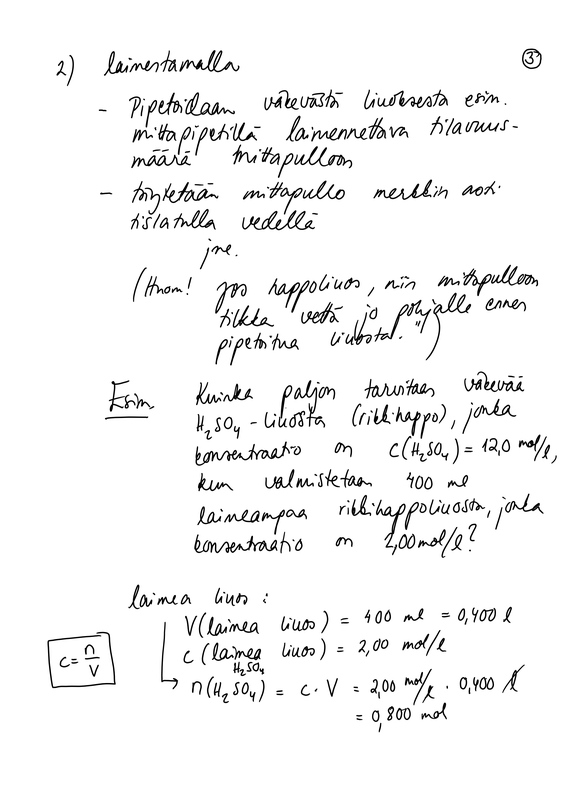 ③
2) laimentamalla
- Pipetoidaan väkevästä liuoksesta esim.
mittapipetillä laimennettava tilavuus-
määrä mittapulloon
- täytetään mittapullo merkkiin asti
tislatulla vedellä
jne.
(Huom! Jos happoliuos, niin mittapulloon
tilkka vettä jo pohjalle ennen
pipetoitua liuosta!")
Esim Kuinka paljon tarvitaan väkevää
H₂SO₄-liuosta (rikkihappo), jonka
konsentraatio on c(H₂SO₄) = 12,0 mol/l,
kun valmistetaan 400 ml
laimeampaa rikkihappoliuosta, jonka
konsentraatio on 2,00 mol/l?
laimea liuos:
V(laimea liuos) = 400 ml = 0,400 l
c(laimea liuos) = 2,00 mol/l
H₂SO₄
c = n/V
n(H₂SO₄) = c · V = 2,00 mol/l · 0,400 l
= 0,800 mol